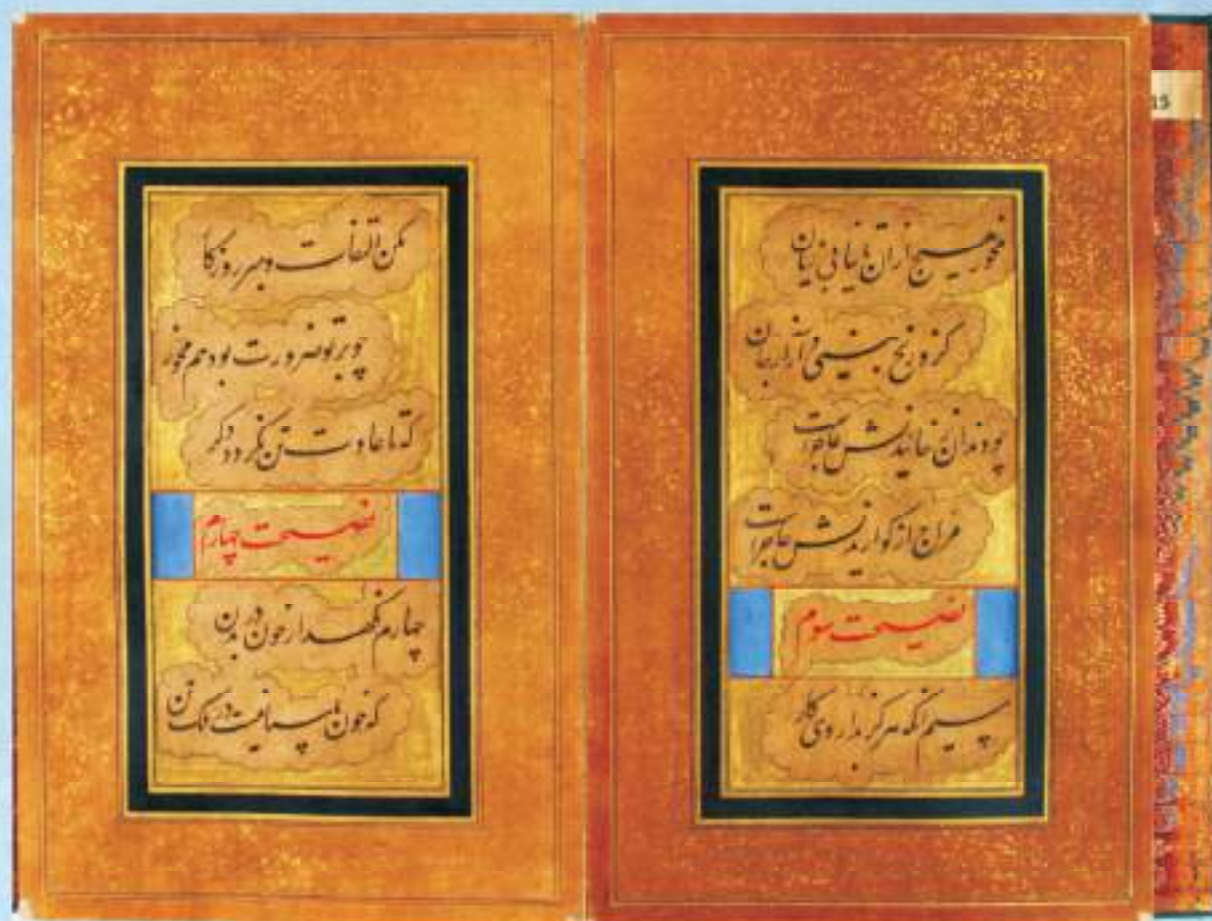 مخور هیچ ازان تا نیابی زیان
کزو رنج بینی و آزار جان
چو دندان ز خاییدنش عاجزست
مزاج از کواریدنش عاجزست
نصیحت سوم
سیم آنکه هرکز بداروی کار
مکن التفات و مبر روزکار
چو بر تو ضرورت بود هم مخور
که تا عادت تن نکردد دکر
نصیحت چهارم
چهارم نکهدار خون در بدن
که خون پاسبانیست در ملک تن
15